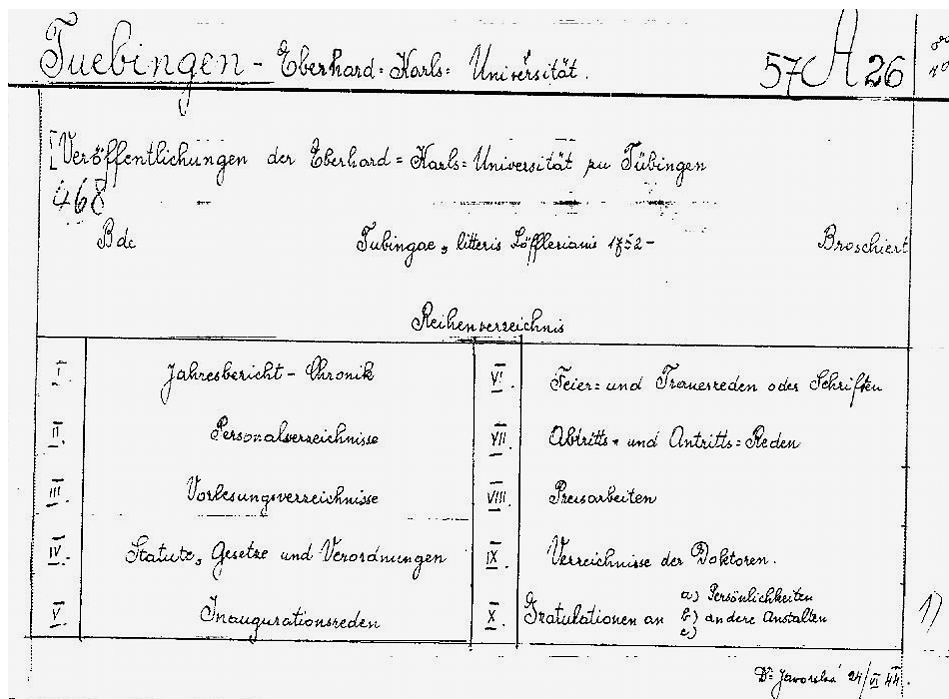 Tuebingen - Eberhard=Karls= Universität. 57 A 26
[Veröffentlichungen der Eberhard=Karls=Universität zu Tübingen
468
Bde Tubingae, litteris Löfflerianis 1752- Broschiert
Reihenverzeichnis
I. Jahresbericht - Chronik VI. Feier= und Trauerreden oder Schriften
II. Personalverzeichnisse VII. Abtritts= und Antritts=Reden
III. Vorlesungsverzeichnisse VIII. Preisarbeiten
IV. Statute, Gesetze und Verordnungen IX. Verzeichnisse der Doktoren.
V. Inaugurationsreden X. Gratulationen an a) Persönlichkeiten
b) andere Anstalten
c)
1)
Dr Jaworská 24/VI 44.